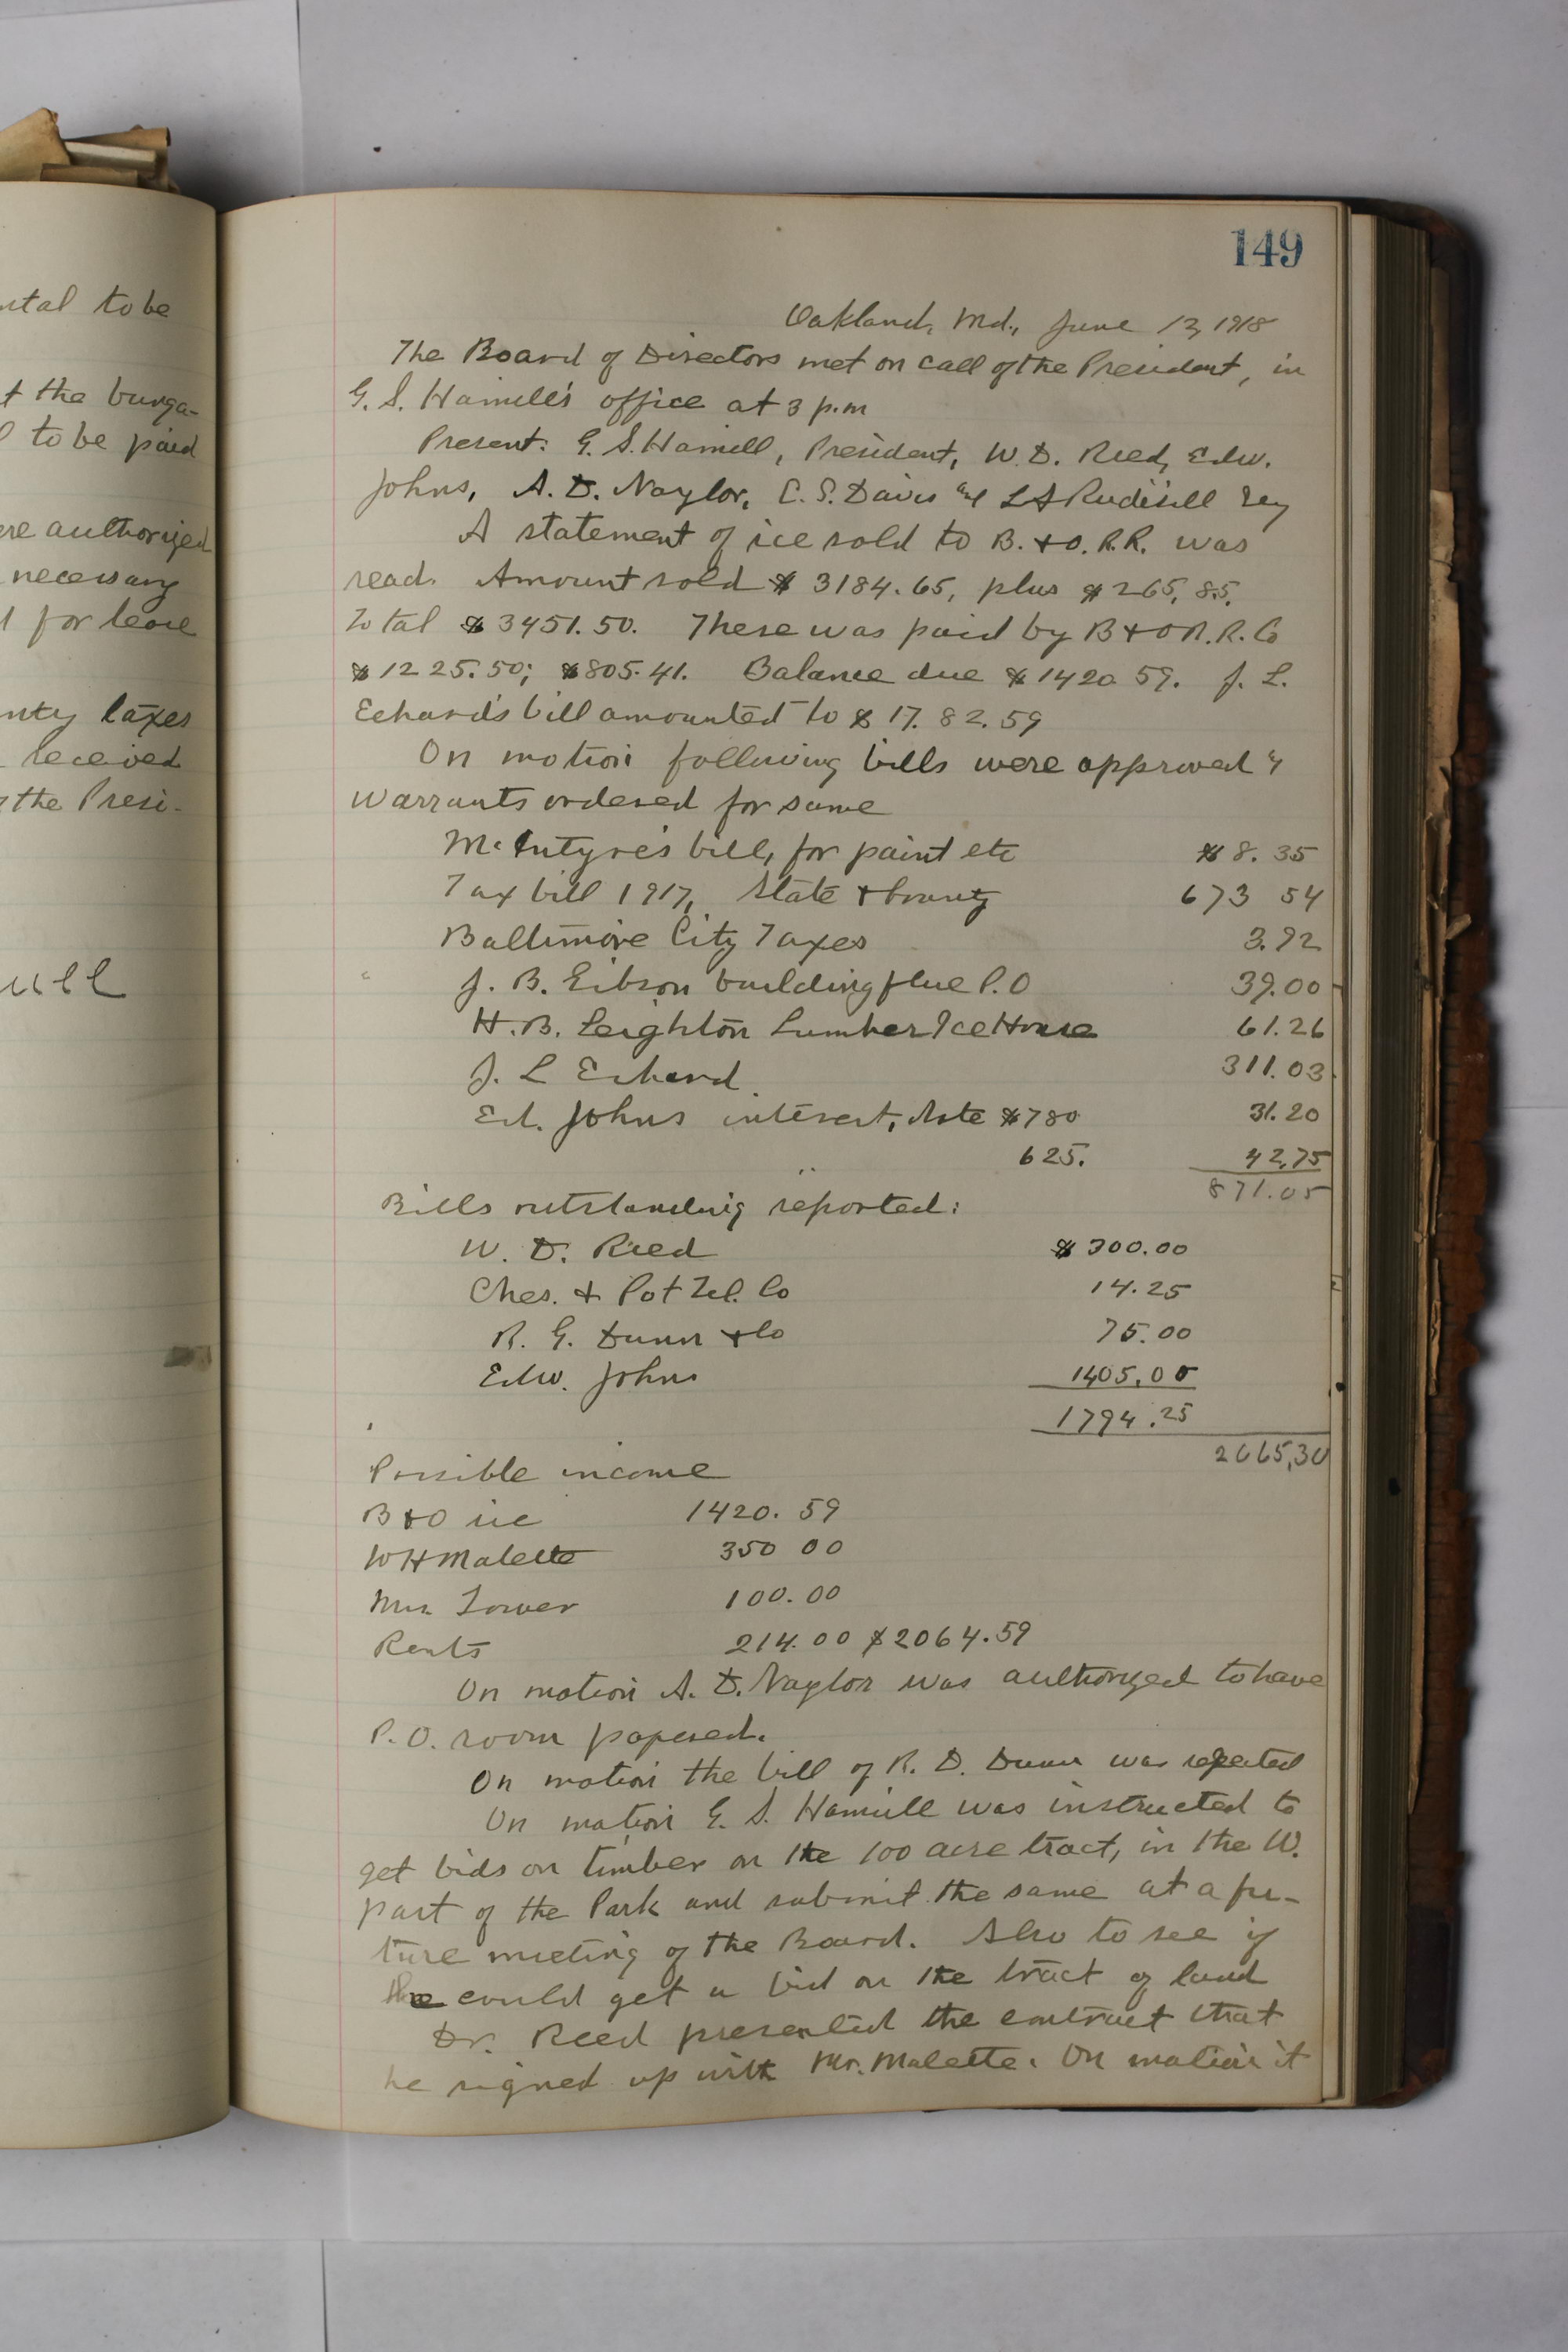 ntal to be
t the bunga-
l to be paid
ere authorized
necessary
d for lease
nty taxes
received
the Presi-
ull
149
Oakland, Md., June 13, 1918
The Board of Directors met on call of the President, in
G. S. Hamill's office at 3 p.m
Present: G. S. Hamill, President, W. D. Reed, Edw.
Johns, A. D. Naylor, E. S. Davis and L A Rudisill Secy
A statement of ice sold to B. + O. R.R. was
read. Amount sold $ 3184.65, plus $ 265.85.
Total $ 3451.50. There was paid by B + O R. R. Co
$ 1225.50; $ 805.41. Balance due $ 1420 59. J. L.
Echard's bill amounted to $ 17.82.59
On motion following bills were approved &
warrants ordered for same
McIntyre's bill, for paint etc $ 8.35
Tax bill 1917, State + County 673 54
Baltimore City Taxes 3.92
J. B. Gibson building flue P.O 39.00
H. B. Leighton Lumber Ice House 61.26
J. L Echard 311.03
Ed. Johns interest, Note $ 780 31.20
625. 42.75
871.05
Bills outstanding reported:
W. D. Reed $ 300.00
Ches. + Pot Tel. Co 14.25
R. G. Dunn + Co 75.00
Edw. Johns 1405.00
1794.25
2665,30
Possible income
B + O ice 1420.59
W H Malette 350 00
Mrs. Lower 100.00
Rents 214.00 $ 2064.59
On motion A. D. Naylor was authorized to have
P. O. room papered.
On motion the bill of R. D. Dunn was rejected
On motion G. S. Hamill was instructed to
get bids on timber on the 100 acre tract, in the W.
part of the Park and submit the same at a fu-
ture meeting of the Board. Also to see if
he could get a bid on the tract of land
Dr. Reed presented the contract that
he signed up with Mr. Malette. On motion it